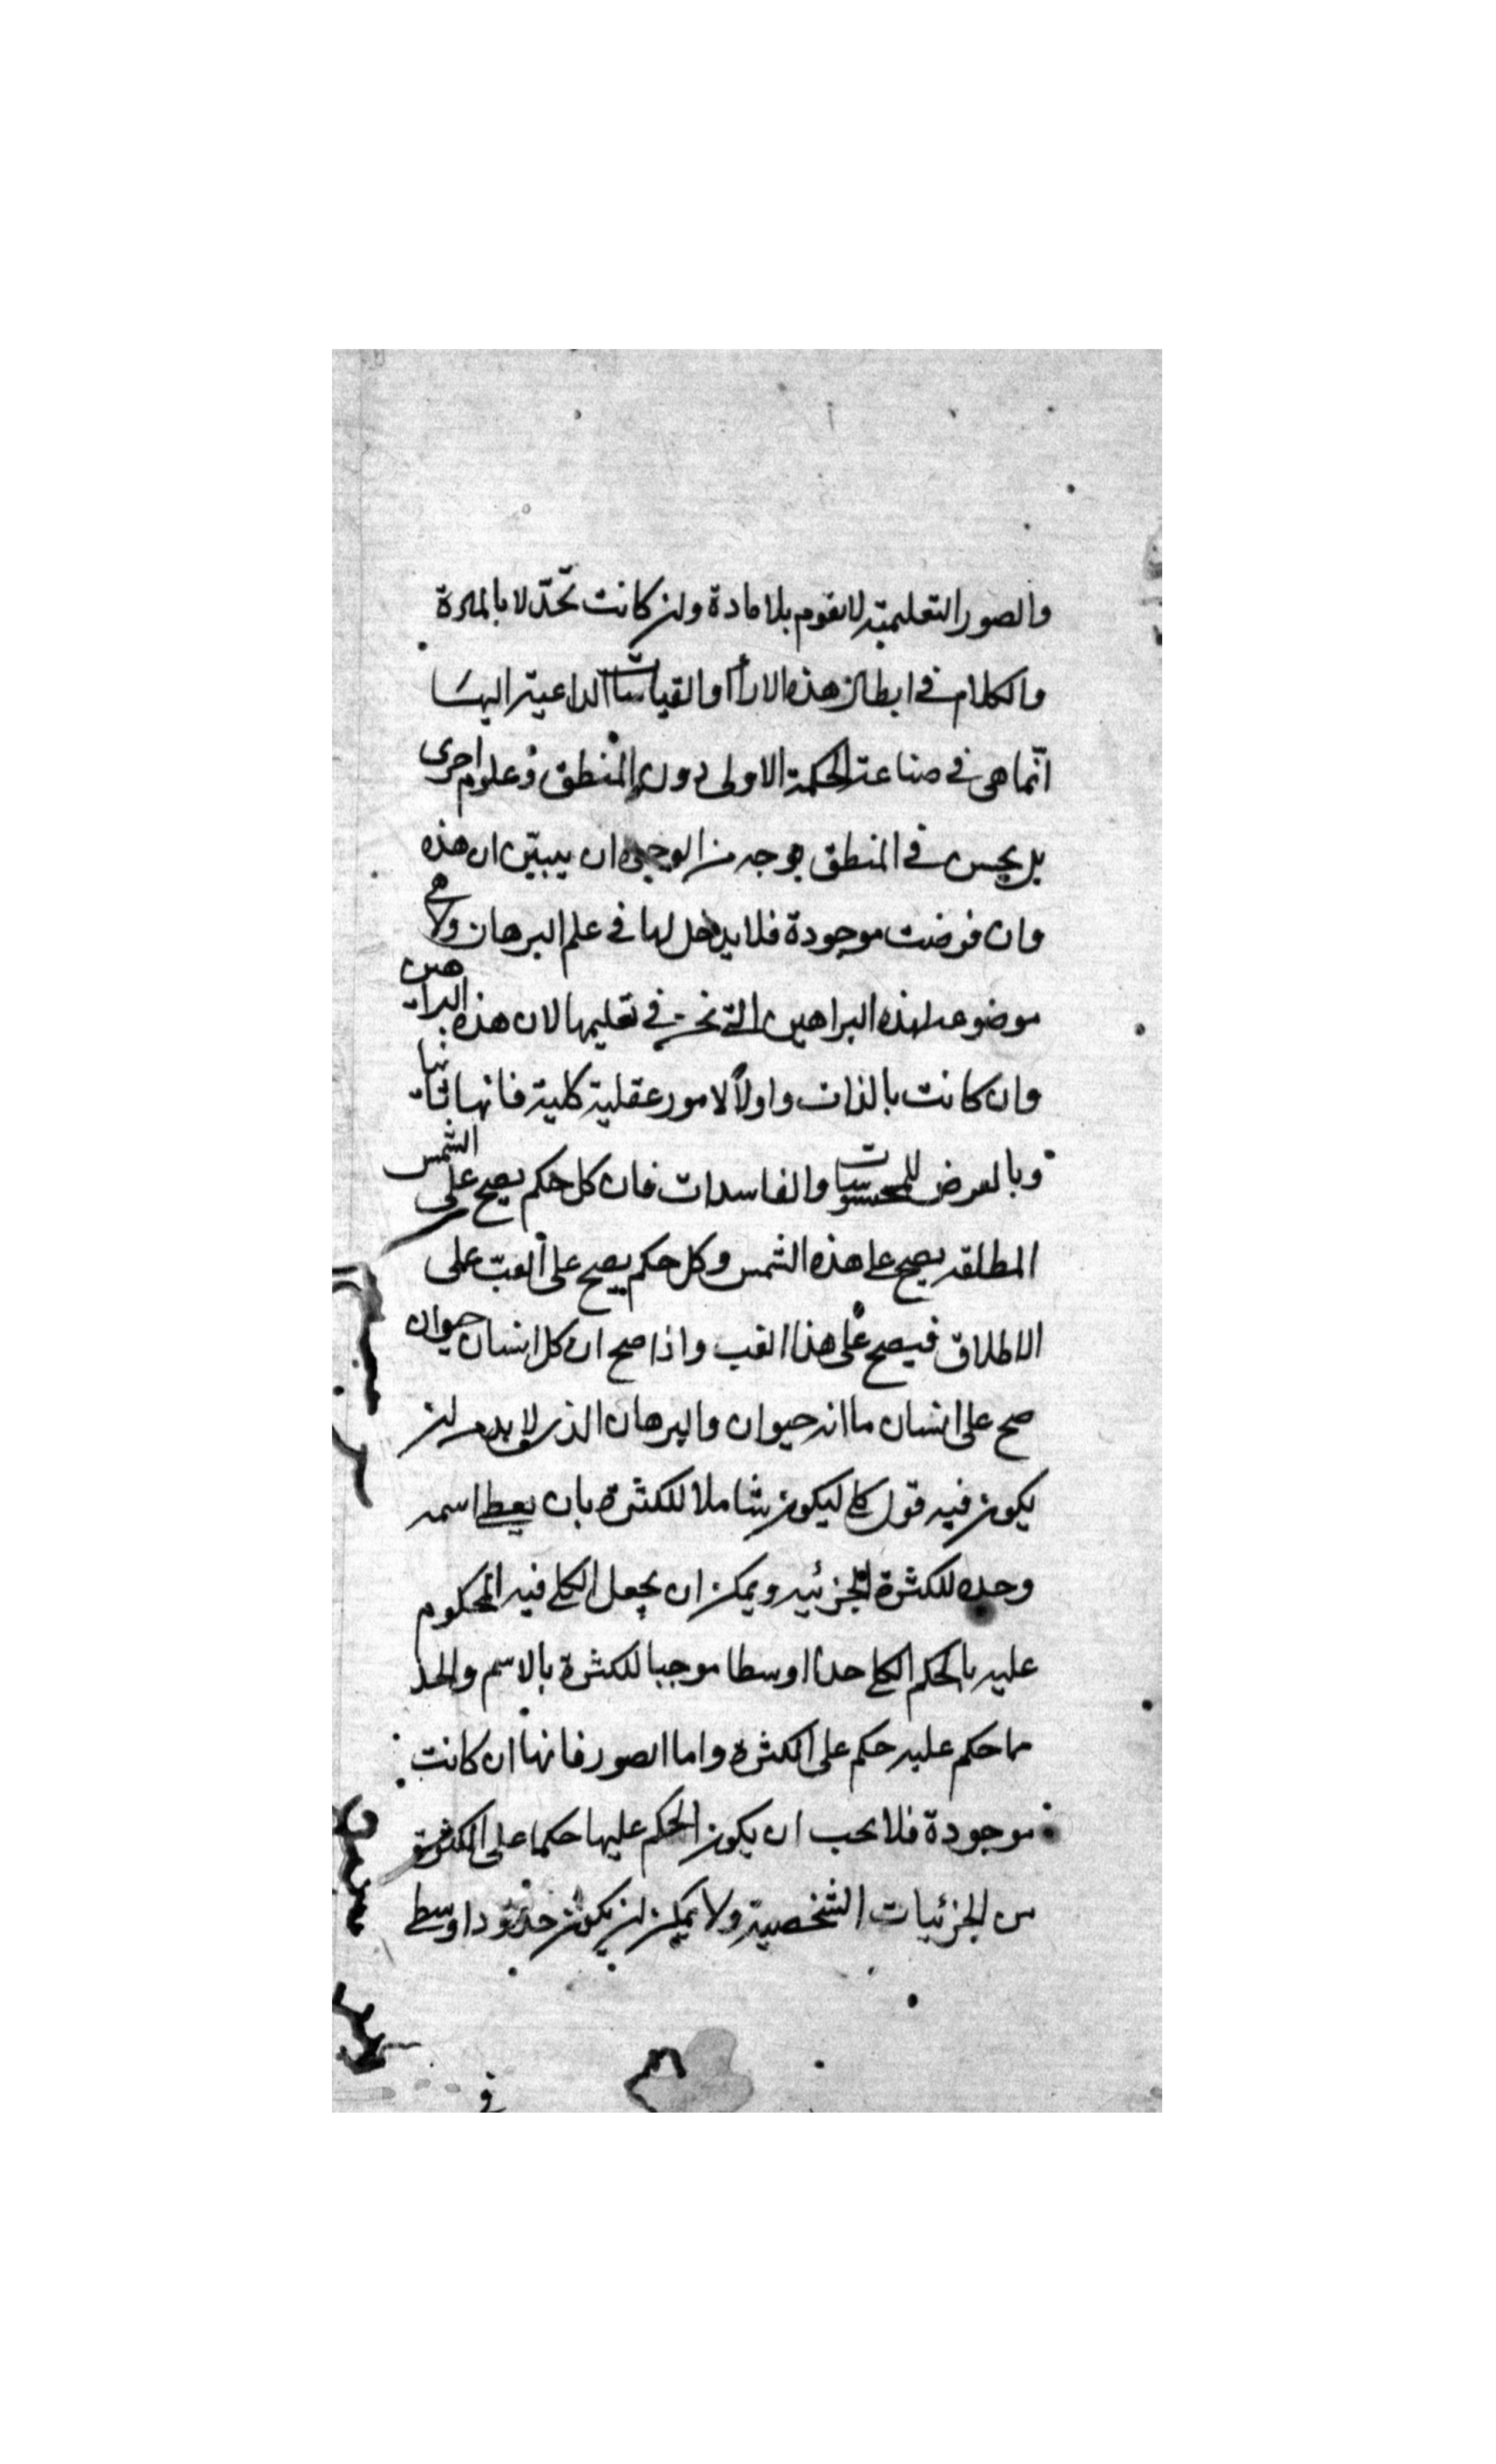 والصور التعليمية لا تقوم بلا مادة وان كانت تحدّ لا بالمادة
والكلام في ابطال هذه الاراأ والقياسات الداعية اليها
انّما هي في صناعة الحكمة الاولى دون المنطق وعلوم اخرى
بل يحسن في المنطق بوجه من الوجوه ان يبيّن ان هذه
وان فرضت موجودة فلا يدخل لها في علم البرهان ولا هي
موضوعه لهذه البراهين التي نحن في تعليمها لان هذه البراهين
وان كانت بالذات واولاً لامور عقلية كلية فانها ثانيا
وبالعرض للمحسوسات والفاسدات فان كل حكم يصح على الشمس
المطلقه يصح على هذه الشمس وكل حكم يصح على الغبّ على
الاطلاق فيصح على هذا الغب واذا صح ان كل انسان حيوان
صح على انسان ما انه حيوان والبرهان الذي لا بد من ان
يكون فيه قول كلي ليكون شاملا للكثرة بان يعطي اسمه
وحده للكثرة الجزئيه ويمكن ان يجعل الكلي فيه المحكوم
عليه بالحكم الكلي حدا اوسطا موجبا للكثرة بالاسم والحد
ما حكم عليه حكم على الكثرة واما الصور فانها ان كانت
موجودة فلا يجب ان يكون الحكم عليها حكما على الكثرة
من الجزئيات الشخصية ولا يمكن ان يكون حدودا وسطى
في